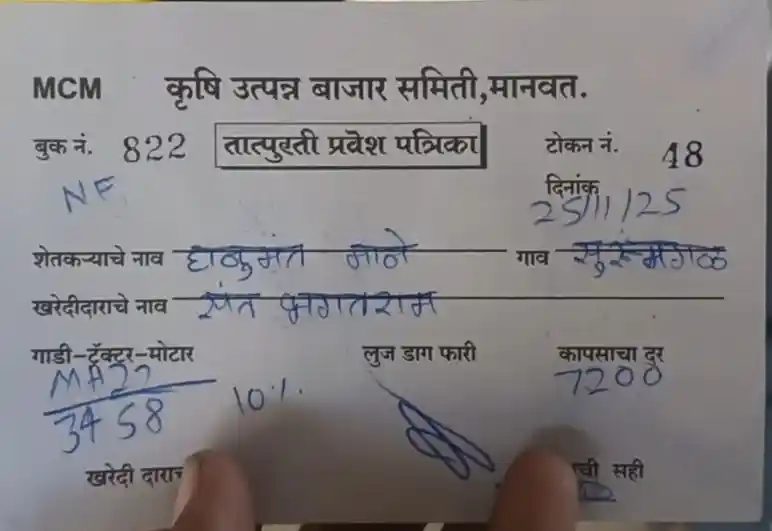 MCM कृषि उत्पन्न बाजार समिती,मानवत.
बुक नं. 822 तात्पुरती प्रवेश पत्रिका टोकन नं. 48
NF दिनांक
25/11/25
शेतकऱ्याचे नाव माने गाव
खरेदीदाराचे नाव संत भगतराम
गाडी-ट्रॅक्टर-मोटार लुज डाग फारी कापसाचा दर
MH22 10% 7200
3458
खरेदी सही